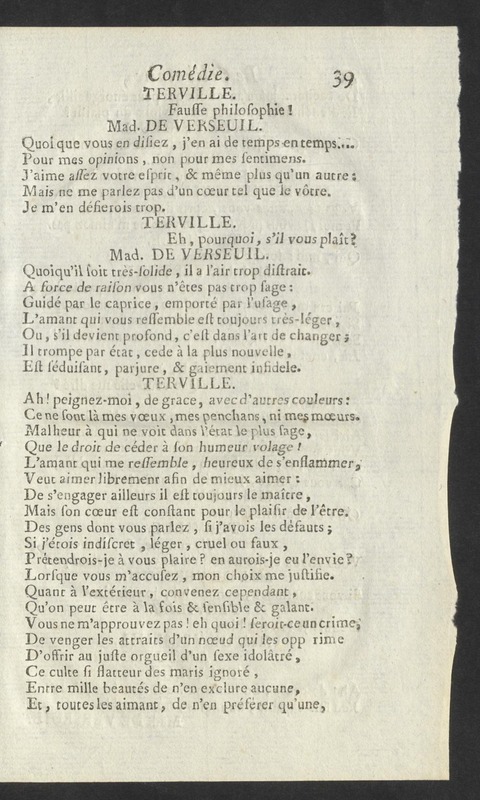 Comédie. 39
TERVILLE.
Fauſſe philoſophie !
Mad. DE VERSEUIL.
Quoi que vous en diſiez , j'en ai de temps en temps....
Pour mes opinions , non pour mes ſentimens.
J'aime aſſez votre eſprit , & même plus qu'un autre :
Mais ne me parlez pas d'un cœur tel que le vôtre.
Je m'en défierois trop.
TERVILLE.
Eh , pourquoi , s'il vous plaît ?
Mad. DE VERSEUIL.
Quoiqu'il ſoit très-ſolide , il a l'air trop diſtrait.
A force de raiſon vous n'êtes pas trop ſage :
Guidé par le caprice , emporté par l'uſage ,
L'amant qui vous reſſemble eſt toujours très-léger ,
Ou , s'il devient profond , c'eſt dans l'art de changer ;
Il trompe par état , cede à la plus nouvelle ,
Eſt ſéduiſant , parjure , & gaiement infidele.
TERVILLE.
Ah ! peignez-moi , de grace , avec d'autres couleurs :
Ce ne ſont là mes vœux , mes penchans , ni mes mœurs.
Malheur à qui ne voit dans l'état le plus ſage ,
Que le droit de céder à ſon humeur volage !
L'amant qui me reſſemble , heureux de s'enflammer ,
Veut aimer librement afin de mieux aimer :
De s'engager ailleurs il eſt toujours le maître ,
Mais ſon cœur eſt conſtant pour le plaiſir de l'être.
Des gens dont vous parlez , ſi j'avois les défauts ;
Si j'étois indiſcret , léger , cruel ou faux ,
Prétendrois-je à vous plaire ? en aurois-je eu l'envie ?
Lorſque vous m'accuſez , mon choix me juſtifie.
Quant à l'extérieur , convenez cependant ,
Qu'on peut être à la fois & ſenſible & galant.
Vous ne m'approuvez pas ! eh quoi ! ſeroit-ce un crime ,
De venger les attraits d'un nœud qui les opp rime
D'offrir au juſte orgueil d'un ſexe idolâtré ,
Ce culte ſi flatteur des maris ignoré ,
Entre mille beautés de n'en exclure aucune ,
Et , toutes les aimant , de n'en préférer qu'une ,